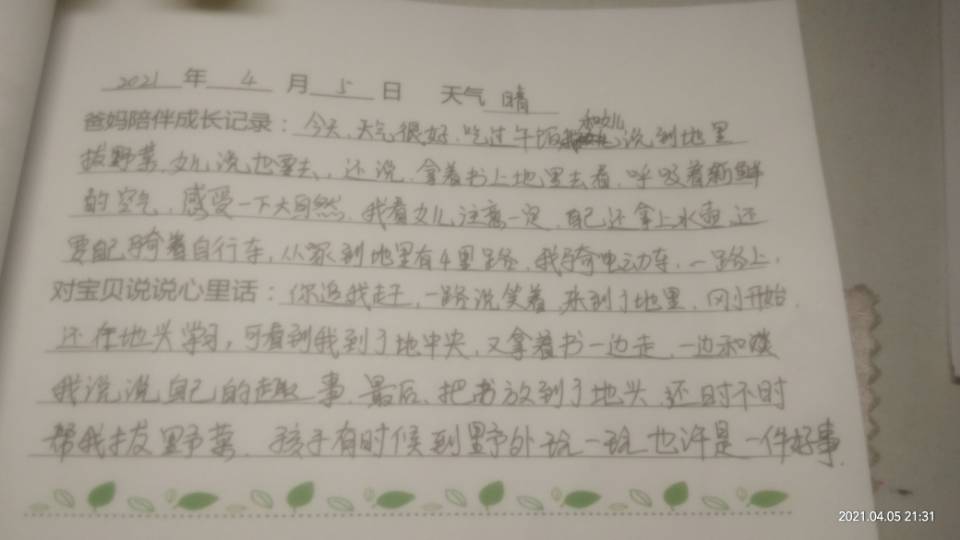 2021年4月5日 天气晴
爸妈陪伴成长记录：今天，天气很好，吃过午饭和女儿说到地里
拔野菜，女儿说也要去，还说，拿着书上地里去看，呼吸着新鲜
的空气，感受一下大自然，我看女儿注意一定，自己还拿上水壶，还
要自己骑着自行车，从家到地里有4里路，我骑电动车，一路上，
对宝贝说说心里话：你追我赶，一路说笑着，来到了地里，刚开始，
还在地头学习，可看到我到了地中央，又拿着书一边走，一边和
我说说自己的趣事，最后，把书放到了地头，还时不时
帮我拔野菜，孩子有时候到野外玩一玩也许是一件好事.
2021.04.05 21:31